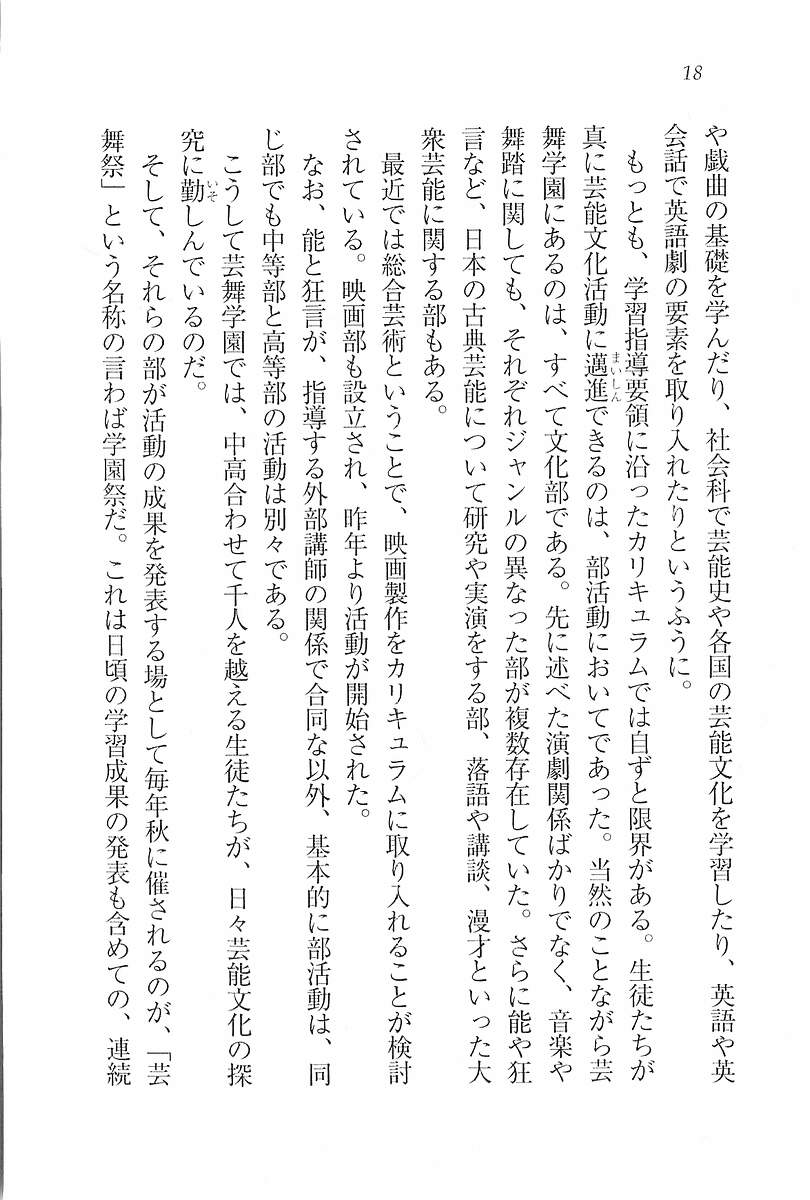 18
や戯曲の基礎を学んだり、社会科で芸能史や各国の芸能文化を学習したり、英語や英
会話で英語劇の要素を取り入れたりというふうに。
もっとも、学習指導要領に沿ったカリキュラムでは自ずと限界がある。生徒たちが
真に芸能文化活動に邁進できるのは、部活動においてであった。当然のことながら芸
まいしん
舞学園にあるのは、すべて文化部である。先に述べた演劇関係ばかりでなく、音楽や
舞踏に関しても、それぞれジャンルの異なった部が複数存在していた。さらに能や狂
言など、日本の古典芸能について研究や実演をする部、落語や講談、漫才といった大
衆芸能に関する部もある。
最近では総合芸術ということで、映画製作をカリキュラムに取り入れることが検討
されている。映画部も設立され、昨年より活動が開始された。
なお、能と狂言が、指導する外部講師の関係で合同な以外、基本的に部活動は、同
じ部でも中等部と高等部の活動は別々である。
こうして芸舞学園では、中高合わせて千人を越える生徒たちが、日々芸能文化の探
究に勤しんでいるのだ。
いそ
そして、それらの部が活動の成果を発表する場として毎年秋に催されるのが、「芸
舞祭」という名称の言わば学園祭だ。これは日頃の学習成果の発表も含めての、連続